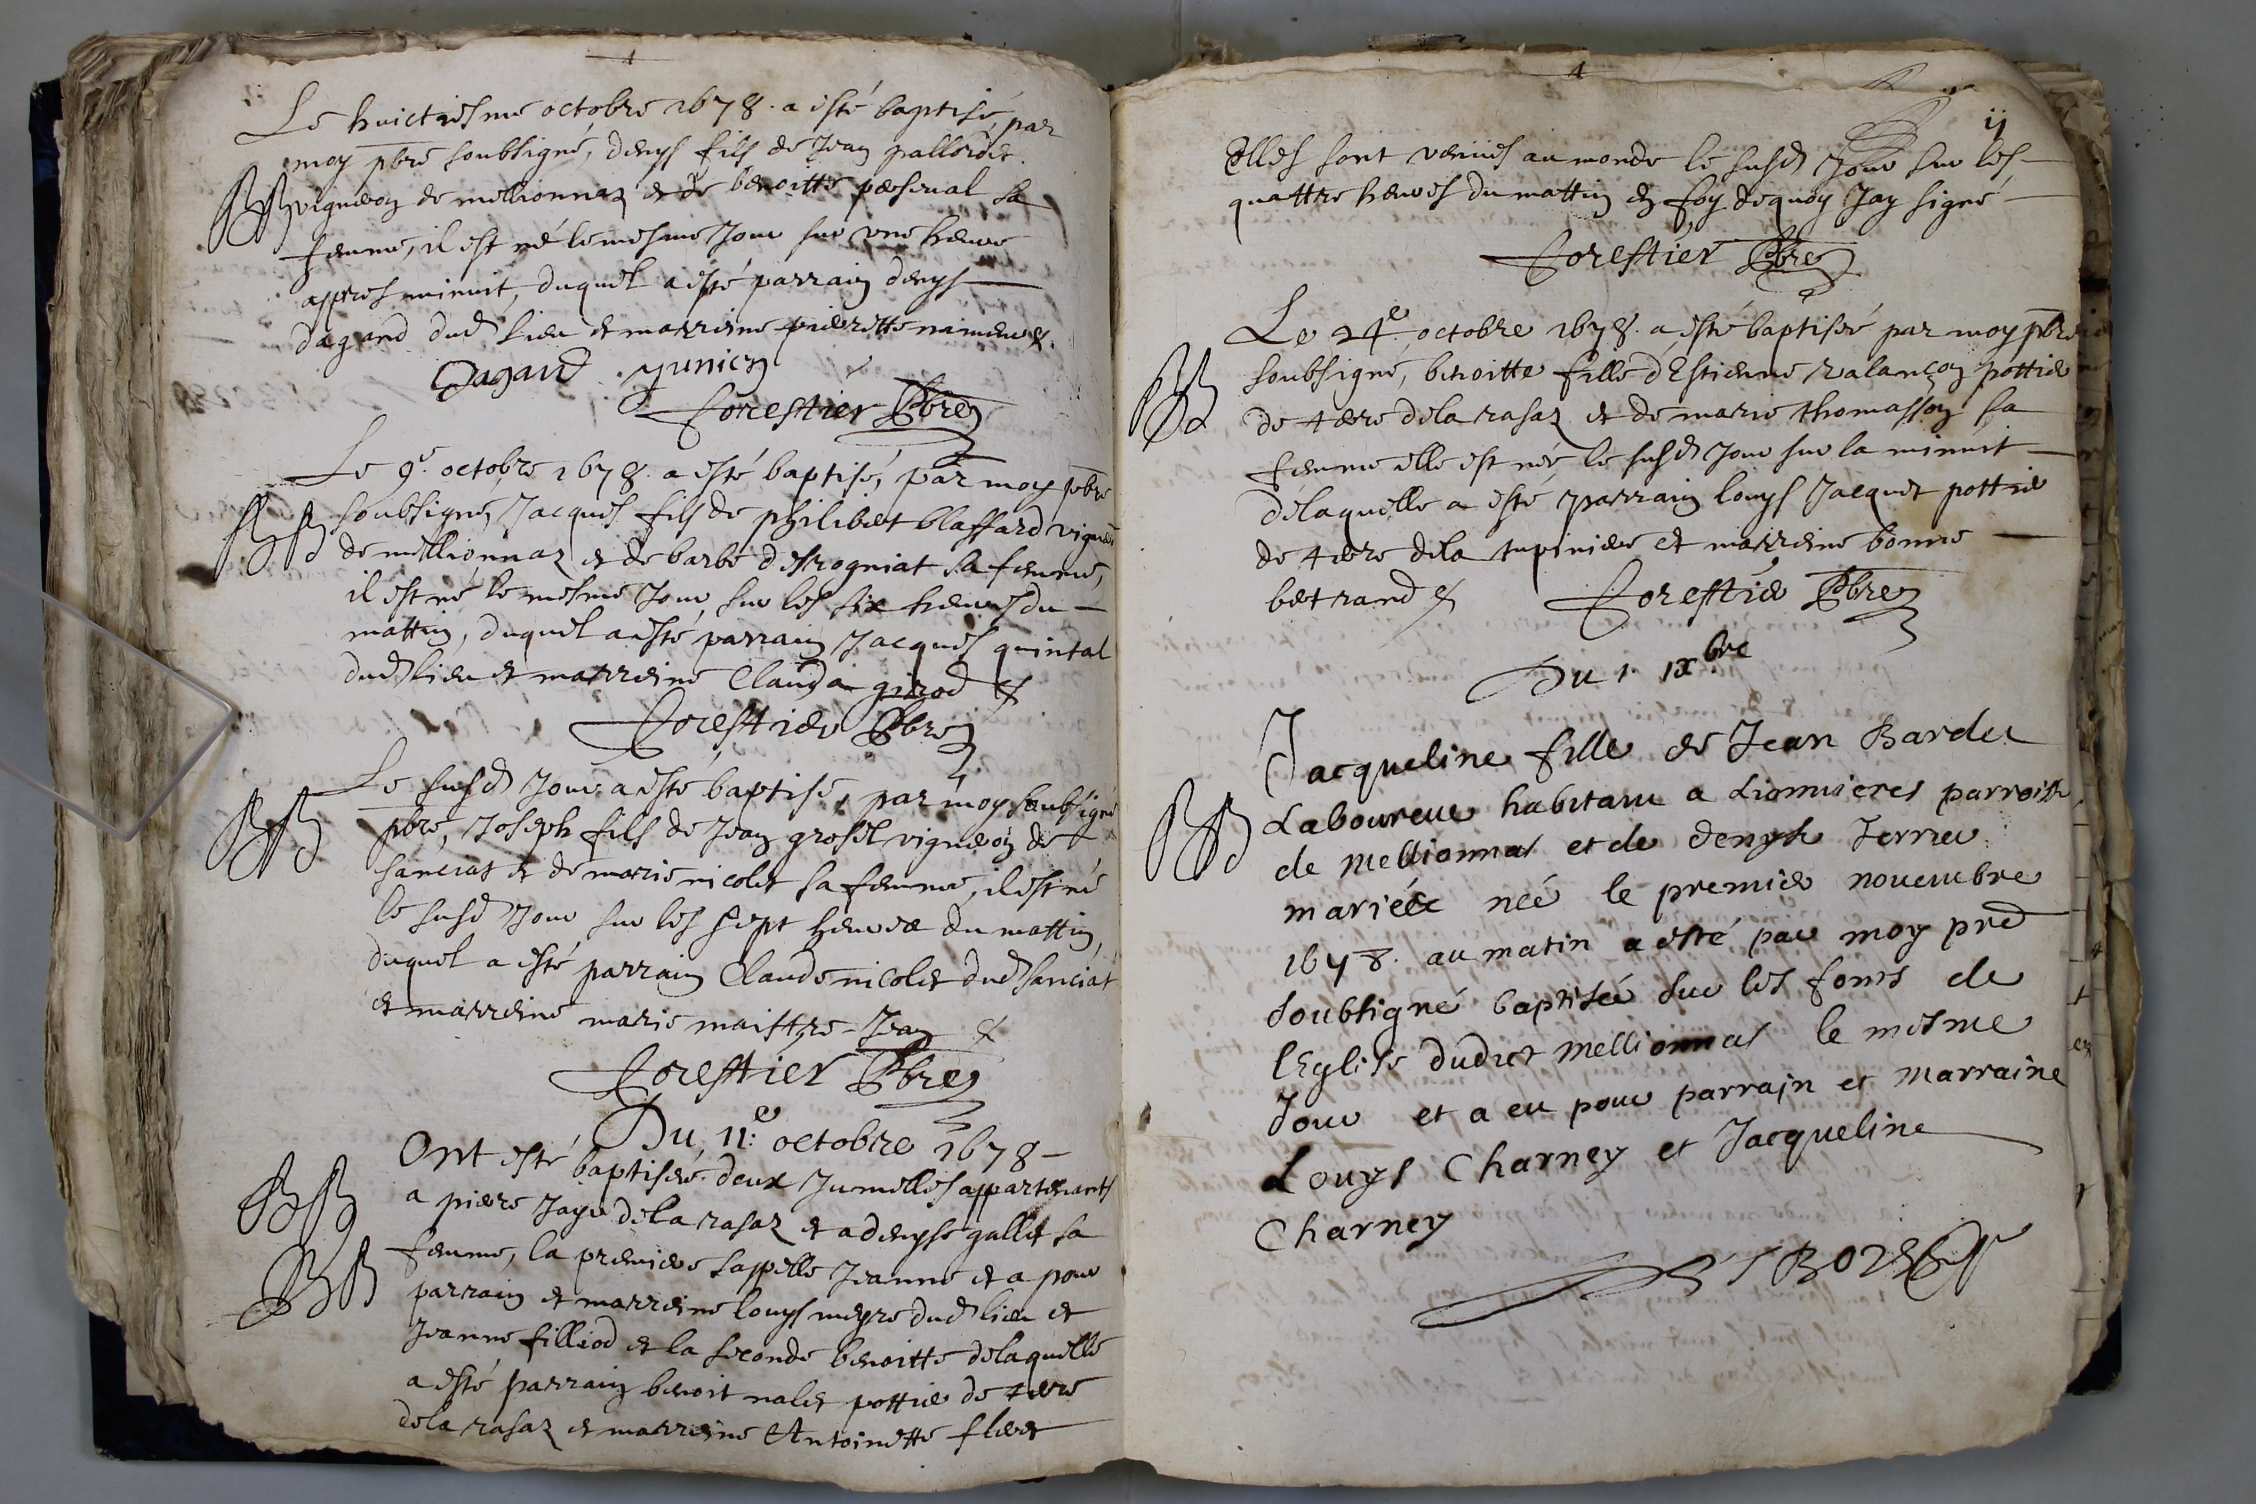 Le huictiesme octobre 1678. a esté baptisé, par
moy pbre soubsigné, denys fils de Jean
vigneron de mellionnaz et de benoitte pescual sa
femme, il est né le mesme Jour sur une heure
appres minuit, duquel a esté parrain denys
dagand dud lieu et marreine pierrette
Dagand . Junien
Forestier Pbre
Le 9e. octobre 1678. a esté baptisé, par moy pbre
soubsigné, Jacques fils de philibert blaffard vigneron
de mellionnaz et de barbe destrogniat sa femme,
il est né le mesme Jour, sur les six heures du
mattin, duquel a esté parrain Jacques quintal
dud lieu et marreine Clauda girod &
Forestier Pbre
Le susd Jour a esté baptisé, par moy soubsigné
pbre, Joseph fils de Jean grosel vigneron de
sanciat et de marie nicolet sa femme, il est né
le susd Jour sur les sept heures du mattin,
duquel a esté parrain Claude nicolet dud sanciat
et marreine marie maistre-Jean &
Forestier Pbre
Du 11.e octobre 1678
Ont esté baptisée deux Jumelles appartenants
a pierre Jayr de la rasaz et a denyse gallet sa
femme, la premiere sappelle Jeanne et a pour
parrain et marreine louys meyre dud lieu et
Jeanne filliod et la seconde benoitte delaquelle
a esté parrain benoit nalet pottier de terre
de la rasaz et marreine Antoinette
4
ij
Elles sont venues au monde le susd Jour sur les
quattre heures du mattin en foy dequoy Jay signé
Forestier Pbre
Le 24e. octobre 1678. a esté baptisée par moy pbre
soubsigné, benoitte fille d'Estienne ralançon pottier
de terre de la rasaz et de marie thomasson sa
femme elle est née le susd Jour sur la minuit
delaquelle a esté parrain louys Jacquet pottier
de terre de la tupiniere et marreine bonne
bertrand &
Forestier Pbre
Du 1. IXbre
Jacqueline fille de Jean Bardet
Laboureur habitant a Lionnieres parroisse
de Mellionnas et de denyse Terrier
mariée née le premier novembre
1678. au matin a esté par moy pred
soubsigné baptisée sur les fonts de
lEglise dudict Mellionnas le mesme
Jour et a eu pour parrajn et Marraine
Louys Charney et Jacqueline
Charney